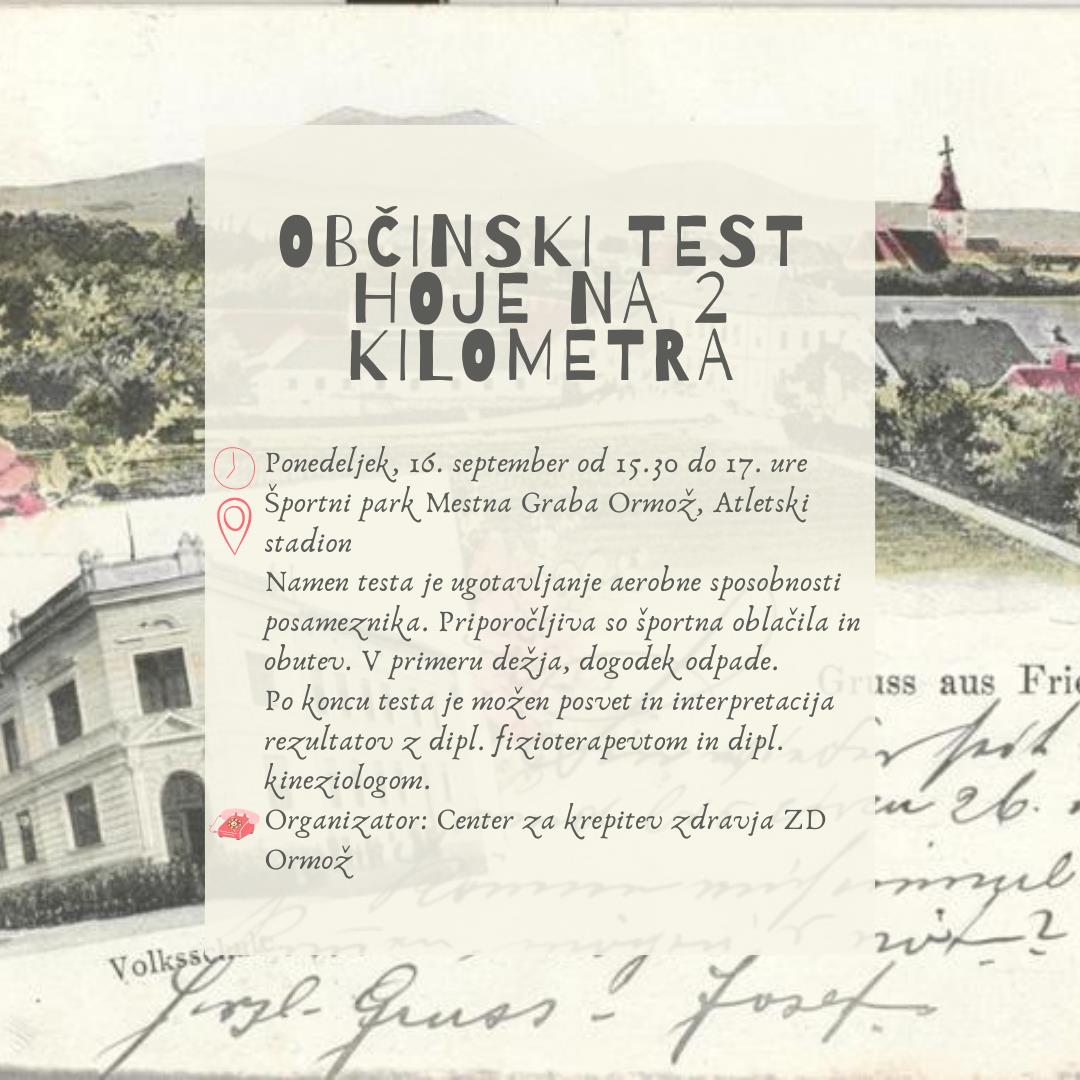 OBČINSKI TEST
HOJE NA 2
KILOMETRA
Ponedeljek, 16. september od 15.30 do 17. ure
Športni park Mestna Graba Ormož, Atletski
stadion
Namen testa je ugotavljanje aerobne sposobnosti
posameznika. Priporočljiva so športna oblačila in
obutev. V primeru dežja, dogodek odpade.
Po koncu testa je možen posvet in interpretacija
rezultatov z dipl. fizioterapevtom in dipl.
kineziologom.
Organizator: Center za krepitev zdravja ZD
Ormož
Gruss aus Frie
26.
Volksschule
Gruss - Josef